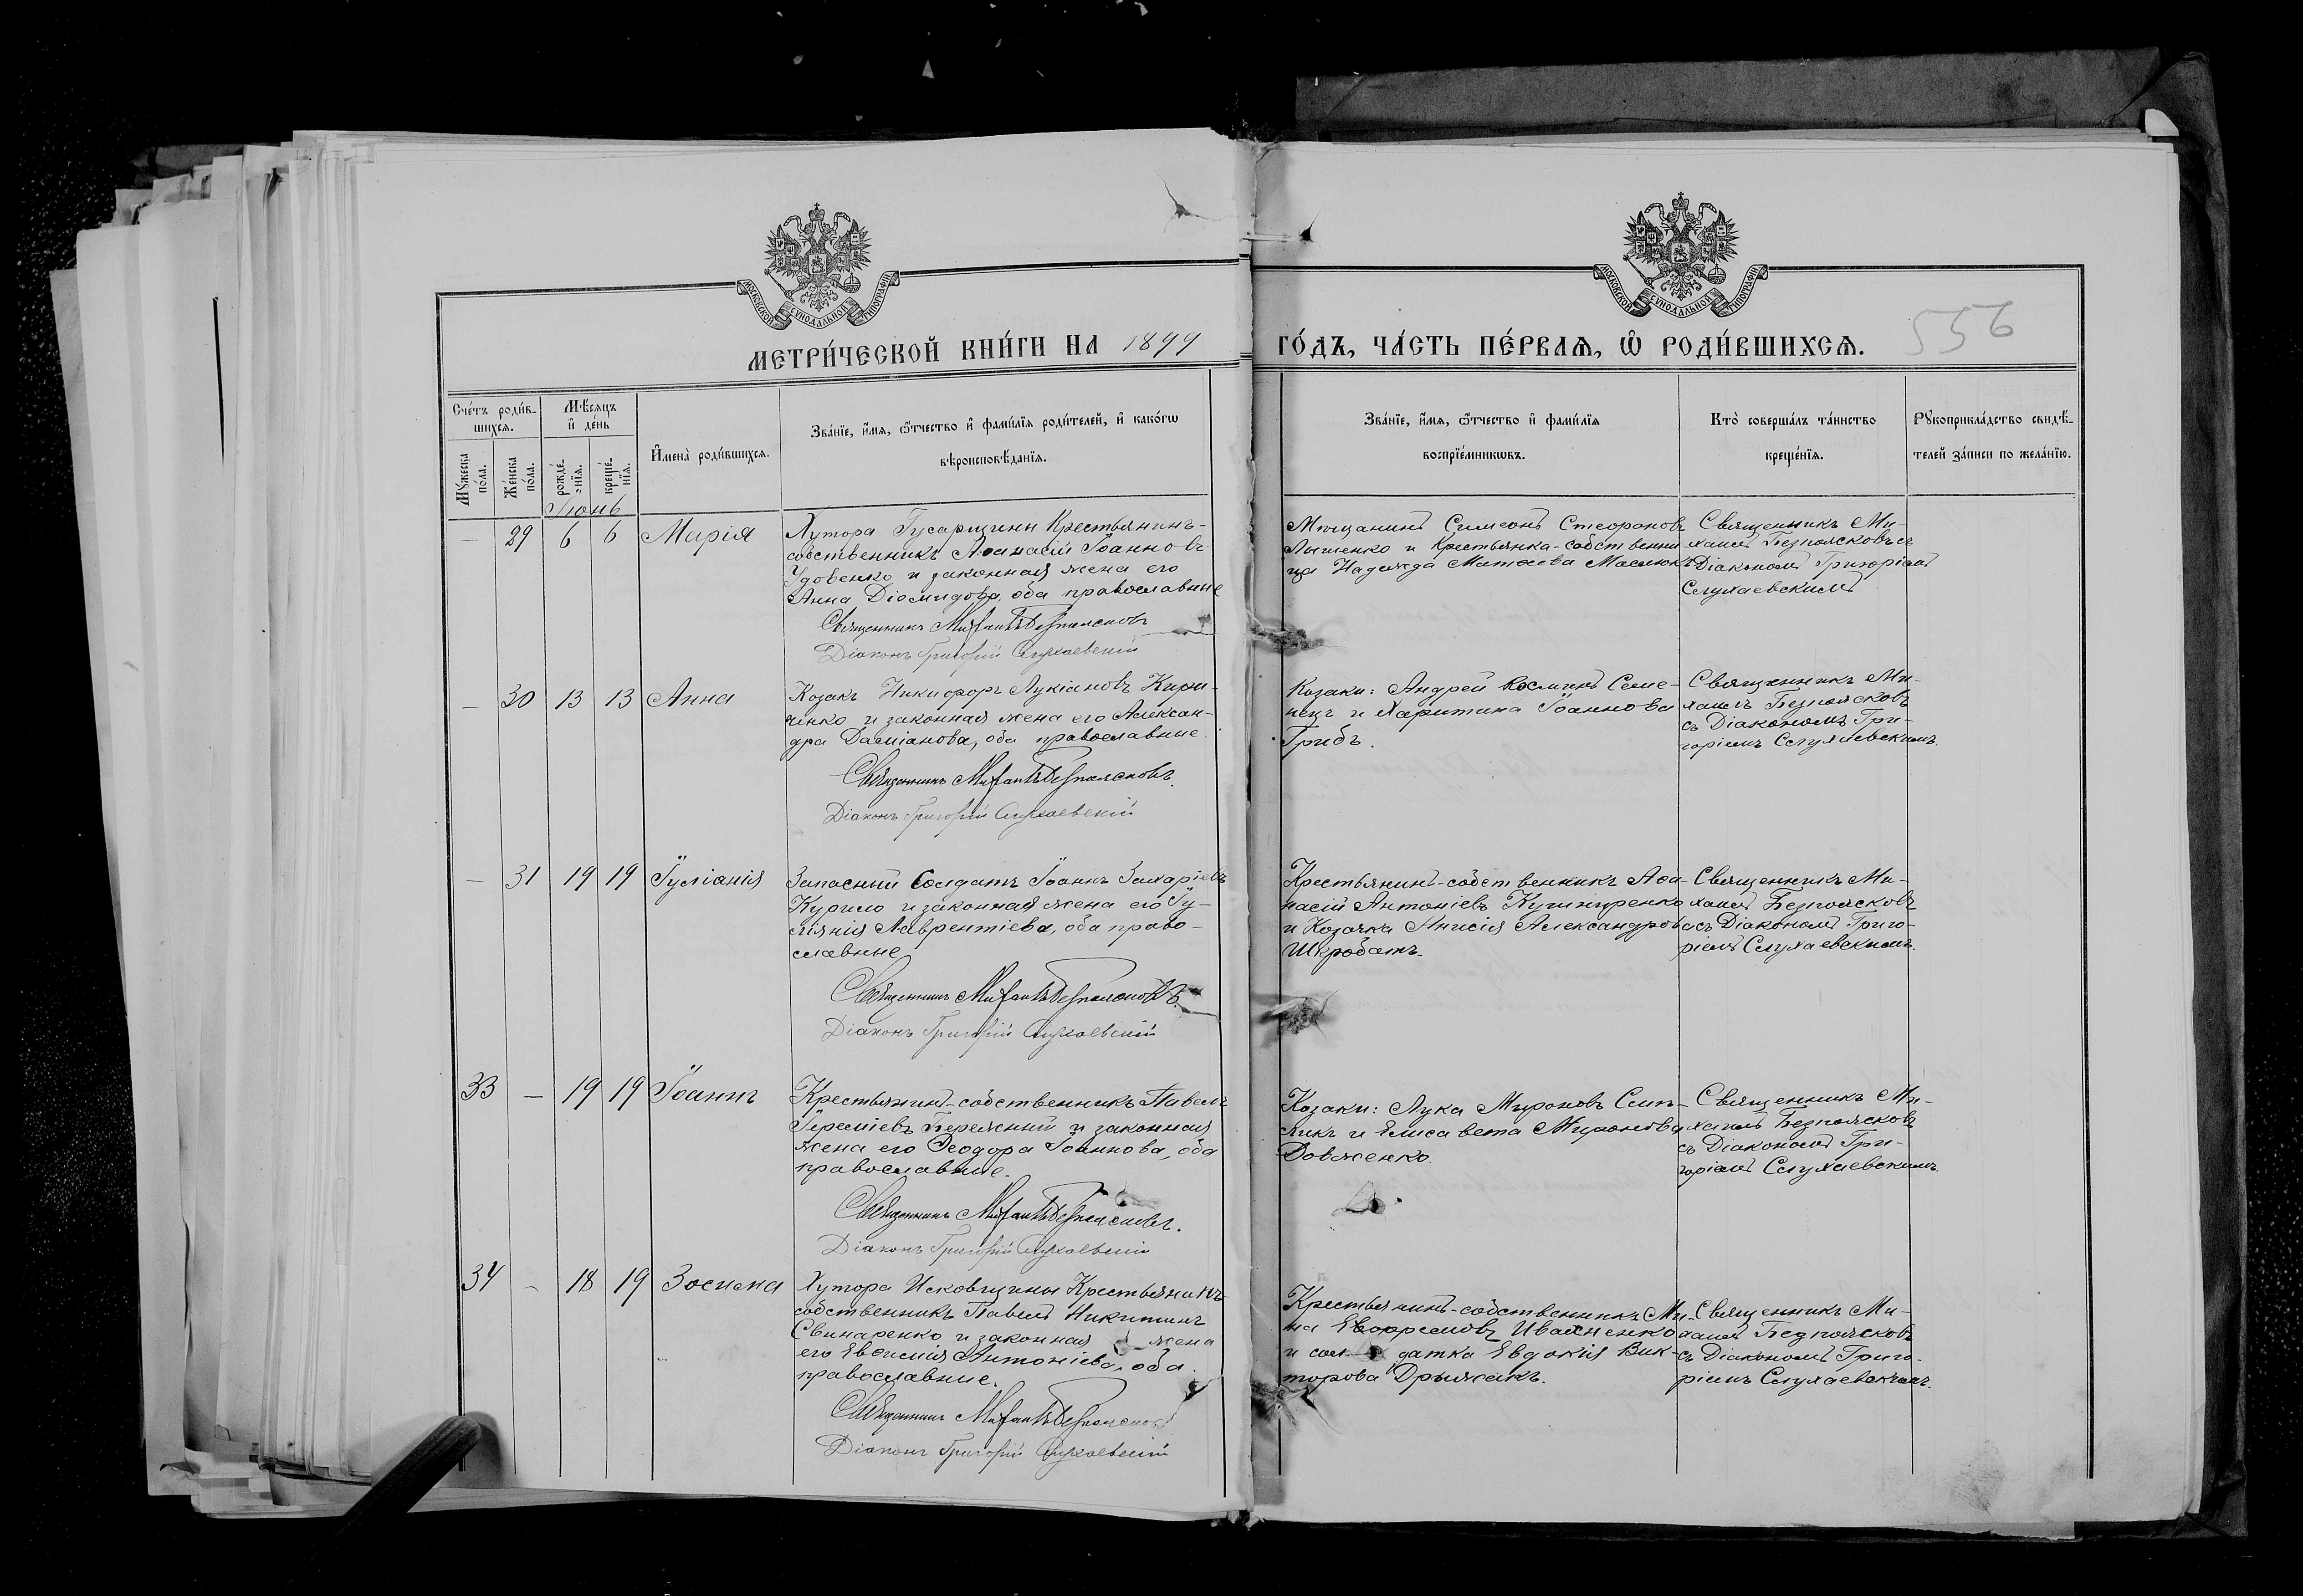 МОСКОВСКОЙ СУНОДАЛЬНОЙ ТИПОГРАФІИ
МОСКОВСКОЙ СУНОДАЛЬНОЙ ТИПОГРАФІИ
МЕТРИ́ЧЕСКОЙ КНИ́ГИ НА 1899 ГО́ДЪ, ЧА́СТЬ ПЕ́РВАѦ, Ѡ РОДИ́ВШИХСѦ.
556
Сче́тъ роди́в-
шихсѧ.
Мꙋжеска по́ла.
Же́нска по́ла.
Мѣ́сяцъ
и҆ де́нь
рожде́-
нїѧ.
креще́-
нїѧ.
И҆мена̀ роди́вшихсѧ.
Зва́нїе, и҆́мѧ, ѻ҆́тчество и҆ фами́лїѧ роди́телей, и҆ како́гѡ
вѣроисповѣ́данїѧ.
Зва́нїе, и҆́мѧ, ѻ҆́тчество и҆ фами́лїѧ
воспрїе́мникѡвъ.
Кто̀ соверша́лъ та́инство
креще́нїѧ.
Рꙋкоприкла́дство свидѣ́-
телей за́писи по жела́нїю.
Іюнь
— 29 6 6 Марія
Хутора Гусарщины Крестьянинъ-
собственникъ Аѳанасій Іоанновъ
Удовенко и законная жена его
Анна Діомидова, оба православные
Священникъ Михаилъ Безпоясковъ
Діаконъ Григорій Слухаевскій
Мѣщанинъ Симеонъ Стефановъ
Лышенко и Крестьянка-собственни
ца Надежда Матѳеева Масюкъ
Священникъ Ми-
хаилъ Безпоясковъ съ
Діакономъ Григоріемъ
Слухаевскимъ
— 30 13 13 Анна
Козакъ Никифоръ Лукіановъ Кири-
ченко и законная жена его Алексан-
дра Даміанова, оба православные.
Священникъ Михаилъ Безпоясковъ.
Діаконъ Григорій Слухаевскій
Козаки: Андрей Косминъ Семе-
нецъ и Харитина Іоаннова
Грибъ.
Священникъ Ми-
хаилъ Безпоясковъ
съ Діакономъ Гри-
горіемъ Слухаевскимъ.
— 31 19 19 Іуліанія
Запасный Солдатъ Іоаннъ Захаріевъ
Курило и законная жена его Іу-
ліанія Лаврентіева, оба право-
славные
Священникъ Михаилъ Безпоясковъ.
Діаконъ Григорій Слухаевскій
Крестьянинъ-собственникъ Аѳа-
насій Антоніевъ Кушниренко
и Козачка Анисія Александрова
Шкробатъ.
Священникъ Ми-
хаилъ Безпоясковъ
съ Діакономъ Григо-
ріемъ Слухаевскимъ.
33 — 19 19 Іоаннъ
Крестьянинъ-собственникъ Павелъ
Іереміевъ и законная
жена его Ѳеодора Іоаннова, оба
православные.
Священникъ Михаилъ Безпоясковъ.
Діаконъ Григорій Слухаевскій
Козаки: Лука Мироновъ Слип-
никъ и Елисавета Миронова
Довженко.
Священникъ Ми-
хаилъ Безпоясковъ
съ Діакономъ Гри-
горіемъ Слухаевскимъ.
34 — 18 19 Зосима
Хутора Исковщины Крестьянинъ-
собственникъ Павелъ Никитинъ
Свинаренко и законная жена
его Евѳимія Антоніева, оба
православные.
Священникъ Михаилъ Безпоясковъ
Діаконъ Григорій Слухаевскій
Крестьянинъ-собственникъ Ми-
на Евфремовъ Иваненко
и сол датка Евдокія Вик-
торова Дрыжакъ.
Священникъ Ми-
хаилъ Безпоясковъ
съ Діакономъ Григо-
ріемъ Слухаевскимъ.